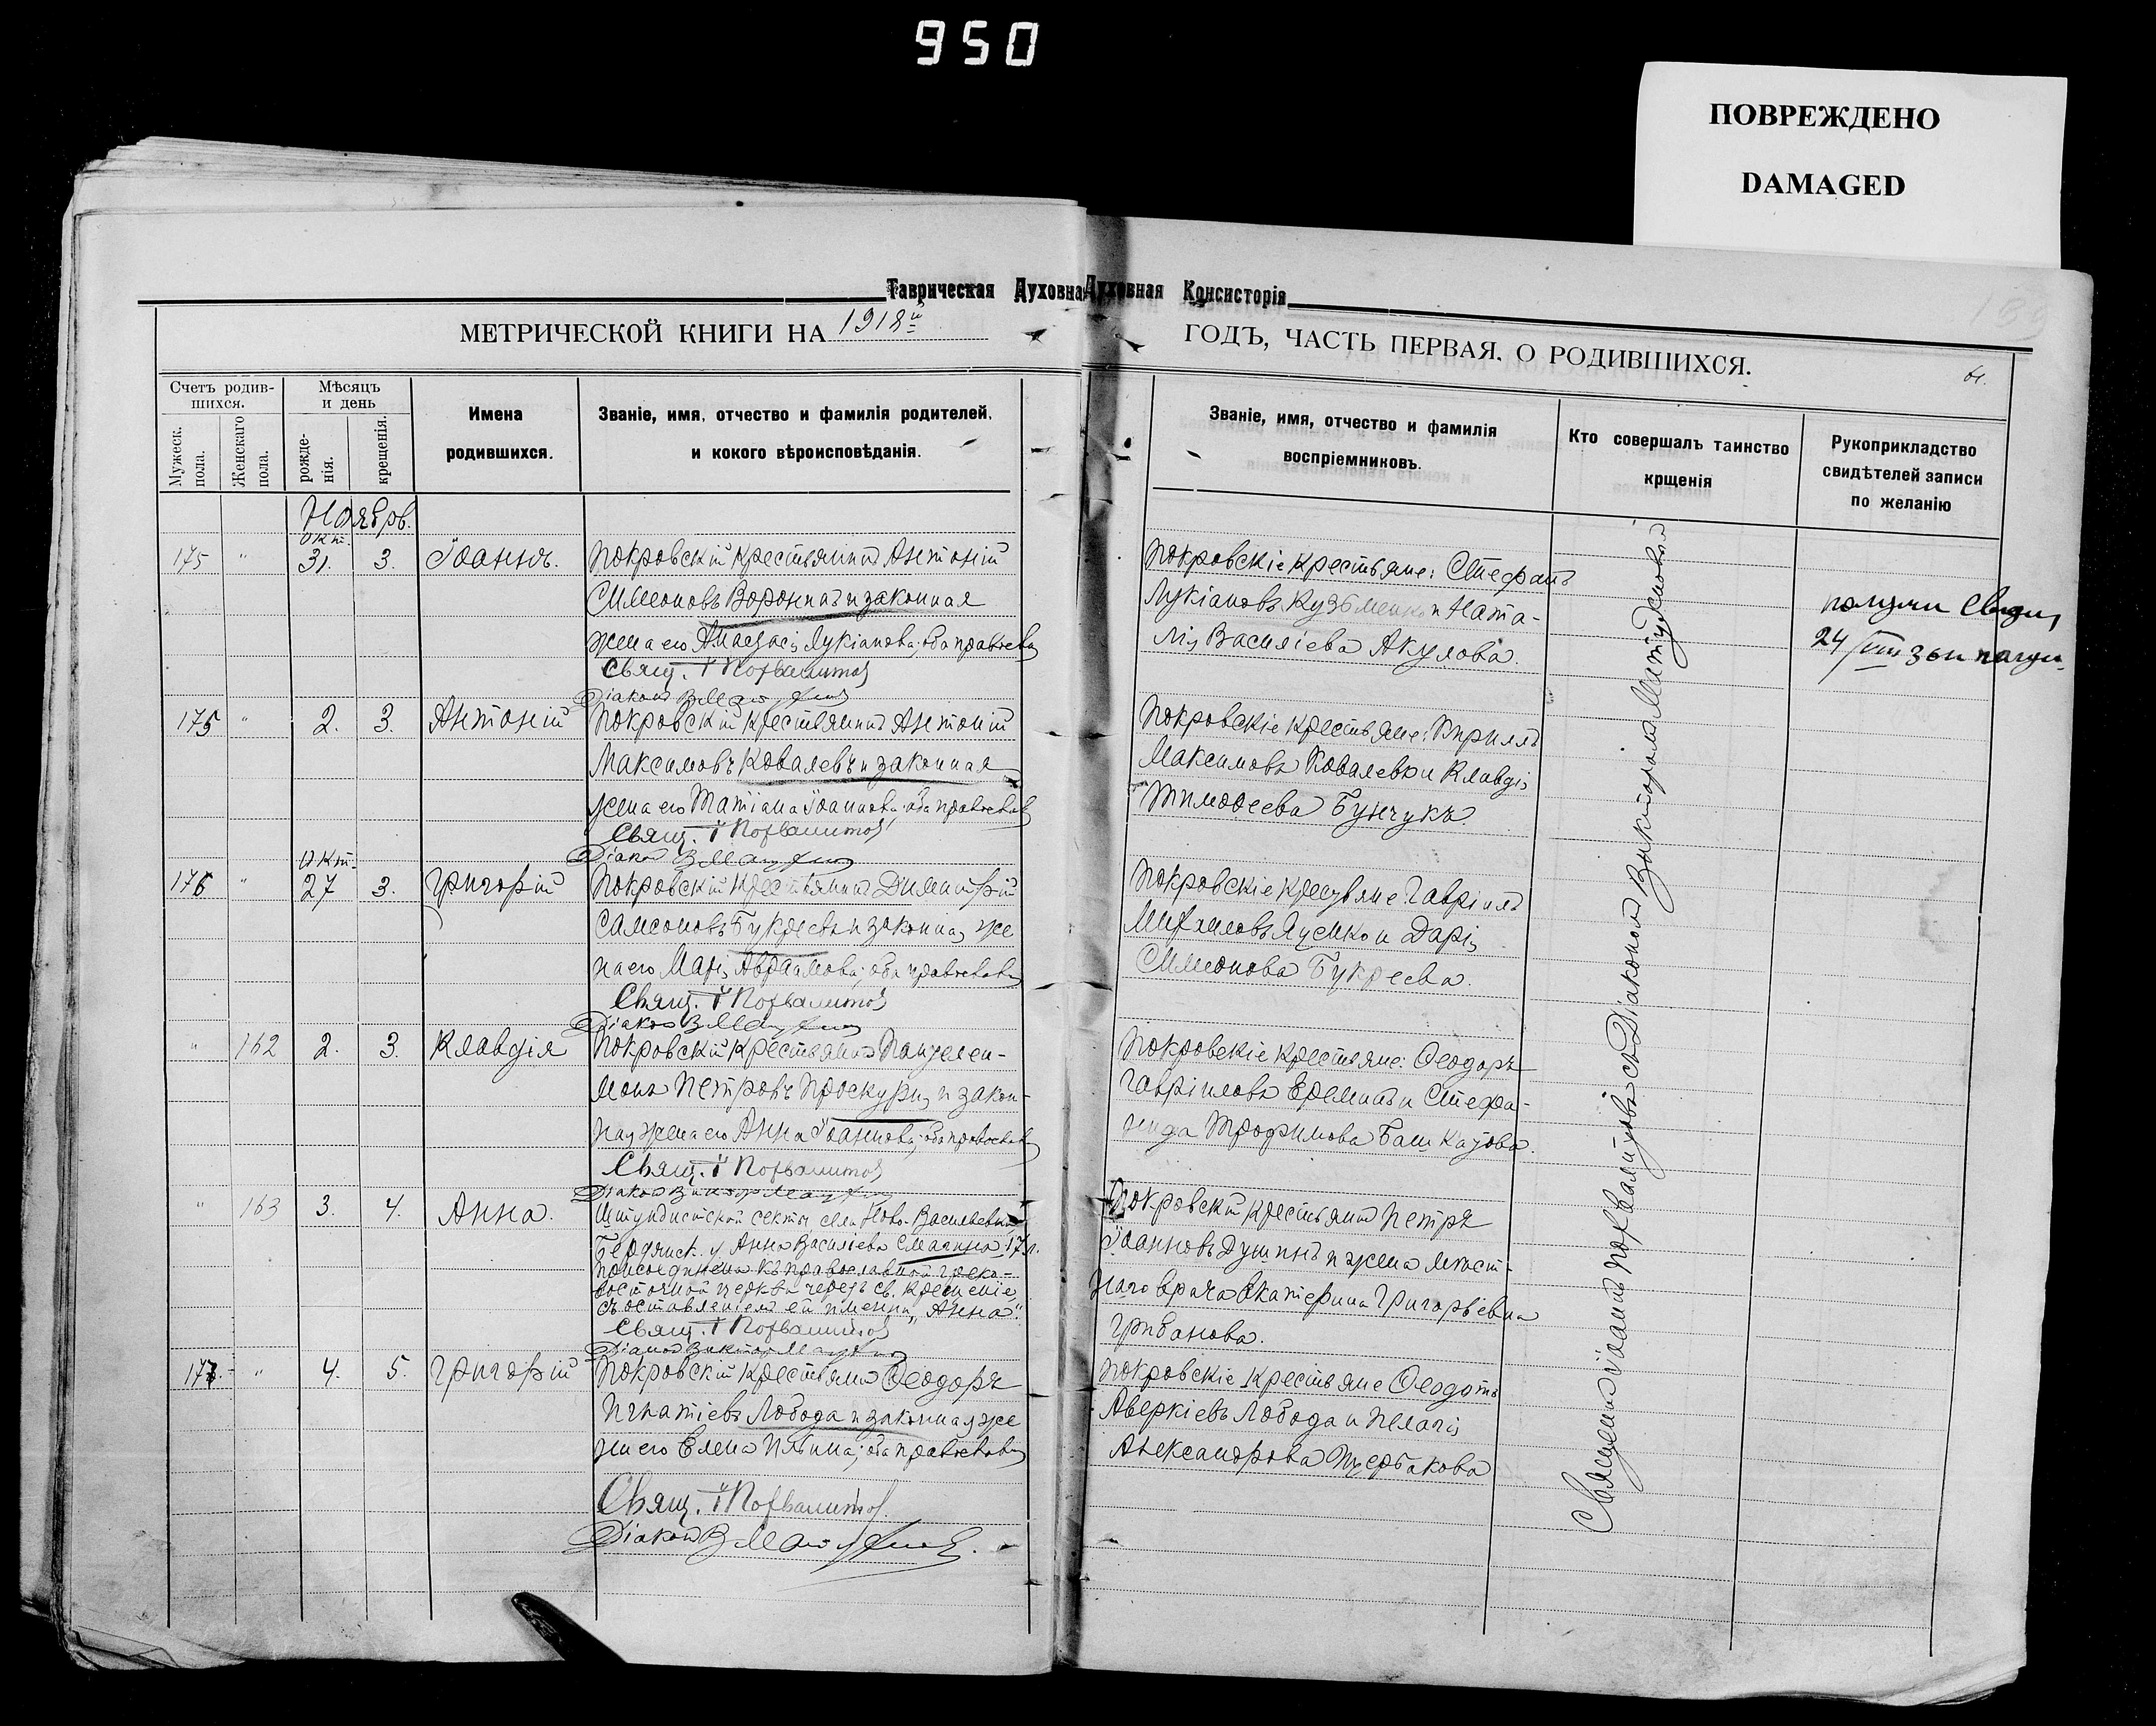 950
ПОВРЕЖДЕНО
DAMAGED
Таврическая Духовна
Духовная Консисторія
МЕТРИЧЕСКОЙ КНИГИ НА 1918й
ГОДЪ, ЧАСТЬ ПЕРВАЯ, О РОДИВШИХСЯ.
Счетъ родив-
шихся.
Мужеск.
пола.
Женскаго
пола.
Мѣсяцъ
и день
рожде-
нія.
крещенія.
Имена
родившихся.
Званіе, имя, отчество и фамилія родителей,
и кокого вѣроисповѣданія.
Званіе, имя, отчество и фамилія
воспріемниковъ.
Кто совершалъ таинство
крщенія
Рукоприкладство
свидѣтелей записи
по желанію
Ноябрь.
Окт.
175 " 31. 3. Іоаннъ.
Покровскій крестьянинъ Антоній
Симеоновъ Воронинъ и законная
жена его Анастасія Лукіанова; оба православ
Свящ. І Похвалитов
Діаконъ В
Покровскіе крестьяне: Стефанъ
Лукіановъ Кузьменко и Ната-
лія Василіева Акулова.
24/VIII
175 " 2. 3. Антоній
Покровскій крестьянинъ Антоній
Максимовъ Ковалевъ и законная
жена его Татіана Іоаннова; оба православ
Свящ. І Похвалитов
Діаконъ В
Покровскіе крестьяне: Кириллъ
Максимовъ Ковалевъ и Клавдія
Тимоѳеева Бунчукъ.
Окт.
176 " 27 3. Григорій
Покровскій крестьянинъ Димитрій
Самсоновъ Букреевъ и законная же
на его Марія Авраамова; оба православ
Свящ. І Похвалитов
Діаконъ В
Покровскіе крестьяне: Гавріилъ
Михаиловъ Яценко и Дарія
Симеонова Букреева.
" 162 2. 3. Клавдія
Покровскій крестьянинъ Пантелеи-
монъ Петровъ Проскурня и закон-
ная жена его Анна Іоаннова; оба православ
Свящ. І Похвалитов
Діаконъ Виктор
Покровскіе крестьяне: Ѳеодоръ
Гавріиловъ Ереминъ и Стефа-
нида Трофимова Башкатова.
" 163 3. 4. Анна.
Штундистской секты села Ново-Васильевки,
Бердянск. у Анна Василіева Смагина 17 л.
присоединена къ православной греко-
восточной церкви чрезъ св. крещеніе,
съ оставленіемъ ей имени „Анна".
Свящ. І Похвалитов
Діаконъ Виктор
Покровскій крестьянинъ Петръ
Іоанновъ Душинъ и жена мѣст-
наго врача Екатерина Григорьевна
Грибанова.
177. " 4. 5. Григорій
Покровскій крестьянинъ Ѳеодоръ
Игнатіевъ Лобода и законная же
на его Елена Ильина; оба православ
Свящ. І Похвалитов.
Діаконъ В
Покровскіе крестьяне Ѳеодотъ
Аверкіевъ Лобода и Пелагія
Александрова Щербакова
Священникъ Іоаннъ Похвалитовъ съ Діакономъ Викторомъ